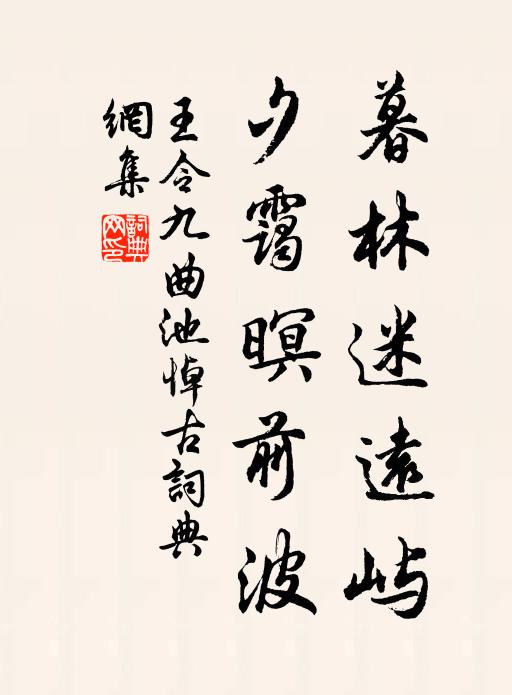 暮林迷遠屿
夕靄暝前波
王令九曲池悼古詞典
網集
詞典
网印